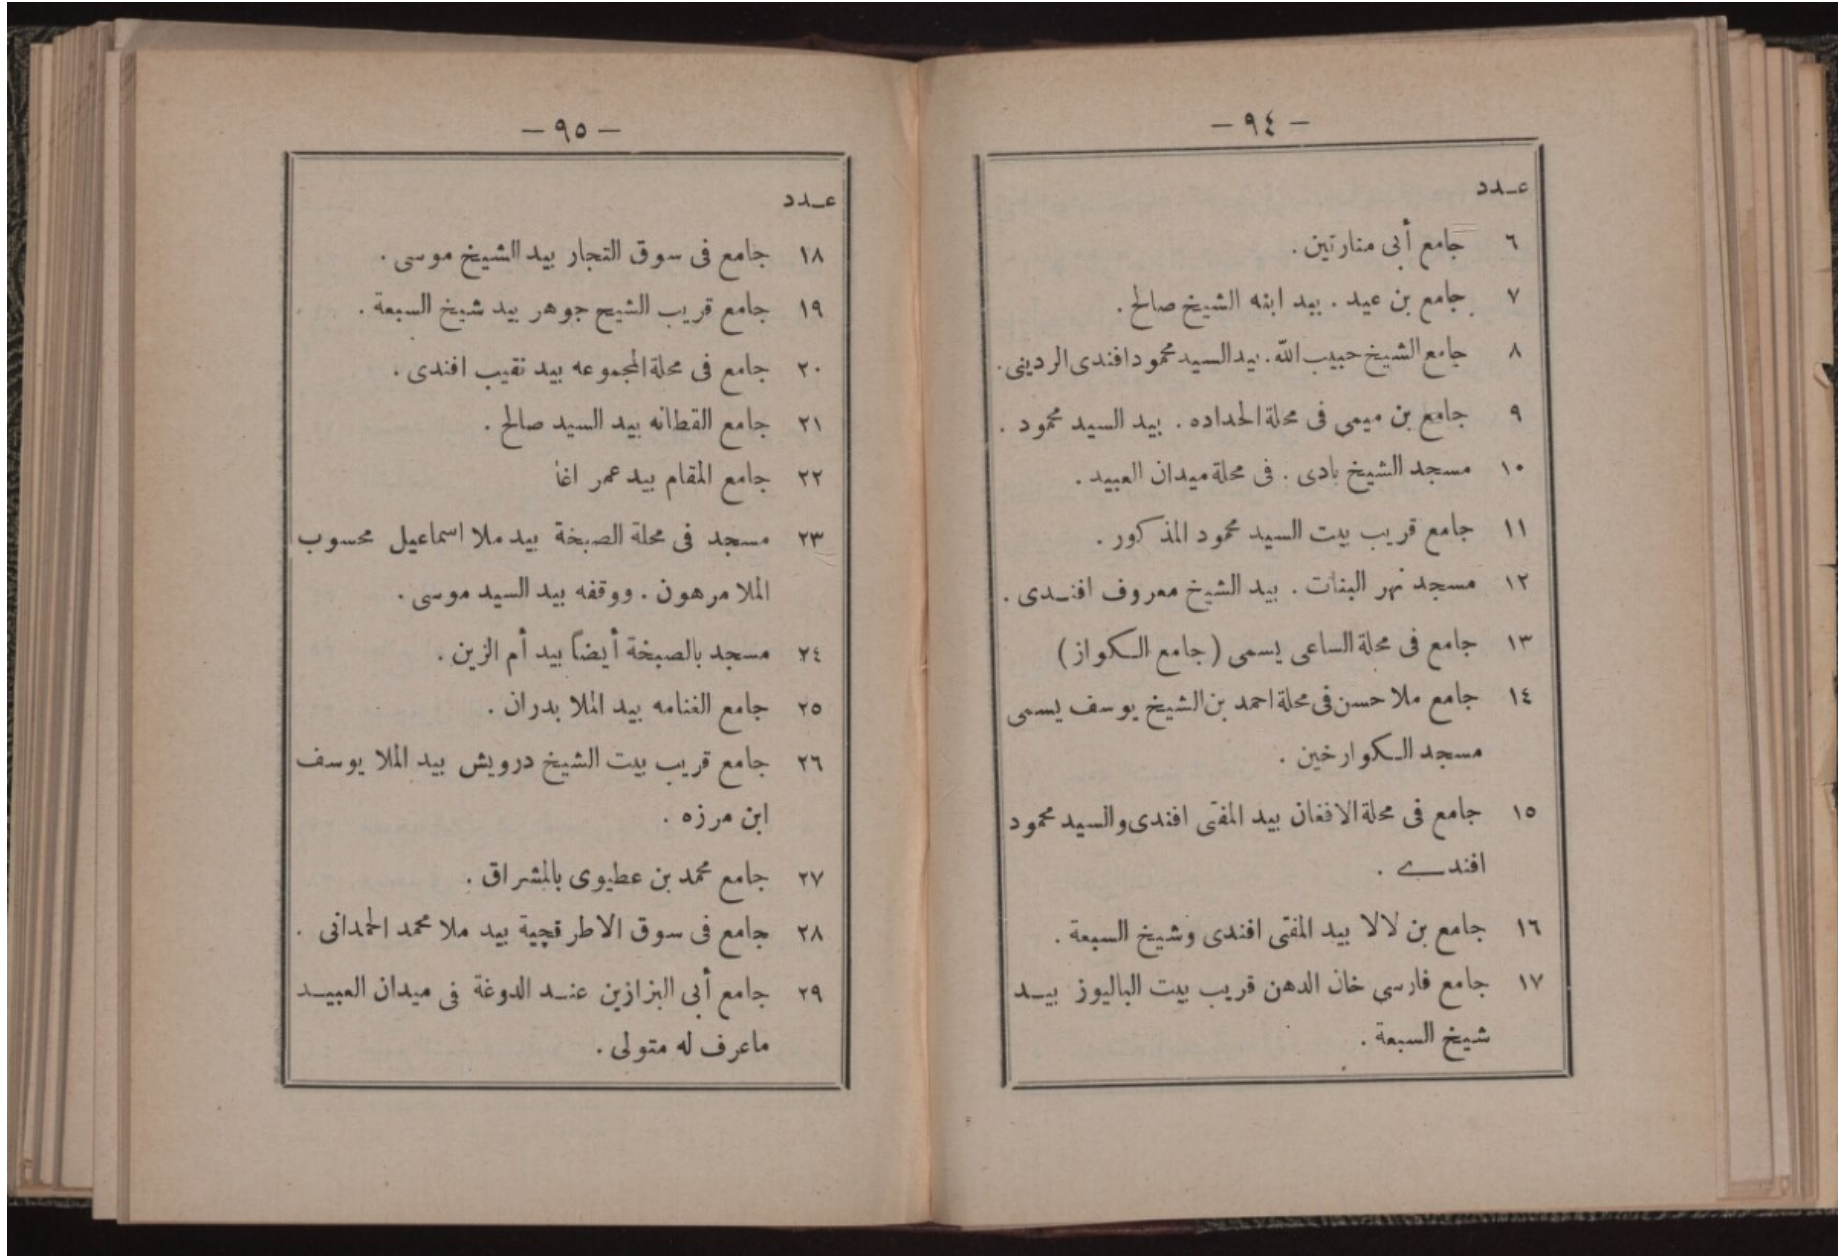 — ٩٤ —
عـدد
٦ جامع أبى منارتين .
٧ جامع بن عيد . بيد ابنه الشيخ صالح .
٨ جامع الشيخ حبيب الله . بيد السيد محمود افندى الردينى .
٩ جامع بن ميمى فى محلة الحداده . بيد السيد محمود .
١٠ مسجد الشيخ بادى . فى محلة ميدان العبيد .
١١ جامع قريب بيت السيد محمود المذكور .
١٢ مسجد نهر البنات . بيد الشيخ معروف افنـدى .
١٣ جامع فى محلة الساعى يسمى ( جامع الـكواز )
١٤ جامع ملا حسن فى محلة احمد بن الشيخ يوسف يسمى
مسجد الـكوارخين .
١٥ جامع فى محلة الافغان بيد المفتى افندى والسيد محمود
افندى .
١٦ جامع بن لالا بيد المفتى افندى وشيخ السبعة .
١٧ جامع فارسى خان الدهن قريب بيت الباليوز بيـد
شيخ السبعة .
— ٩٥ —
عـدد
١٨ جامع فى سوق التجار بيد الشيخ موسى .
١٩ جامع قريب الشيخ جوهر بيد شيخ السبعة .
٢٠ جامع فى محلة المجموعه بيد نقيب افندى .
٢١ جامع القطانه بيد السيد صالح .
٢٢ جامع المقام بيد عمر اغا
٢٣ مسجد فى محلة الصبخة بيد ملا اسماعيل محسوب
الملا مرهون . ووقفه بيد السيد موسى .
٢٤ مسجد بالصبخة أيضاً بيد أم الزين .
٢٥ جامع الغنامه بيد الملا بدران .
٢٦ جامع قريب بيت الشيخ درويش بيد الملا يوسف
ابن مرزه .
٢٧ جامع محمد بن عطيوى بالمشراق .
٢٨ جامع فى سوق الاطرقچية بيد ملا محمد الحمدانى .
٢٩ جامع أبى البزازين عنـد الدوغة فى ميدان العبيـد
ماعرف له متولى .